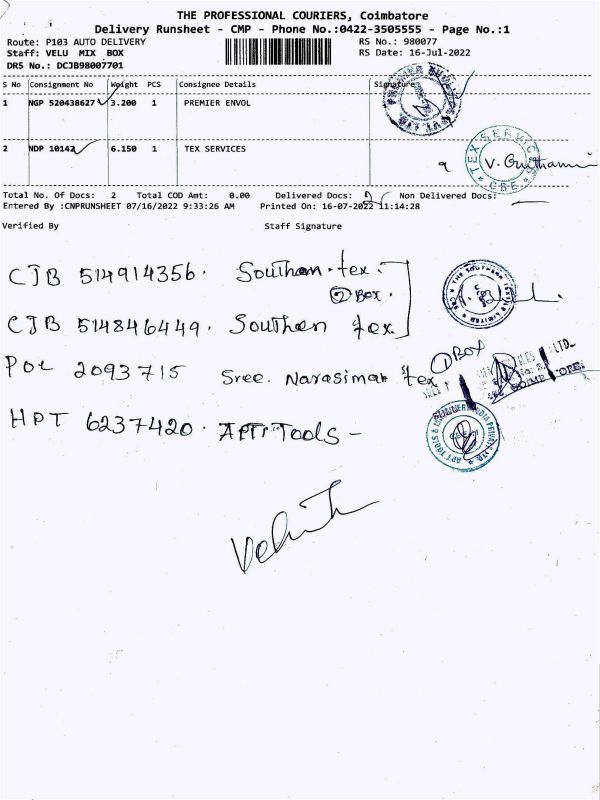 THE PROFESSIONAL COURIERS, Coimbatore
Delivery Runsheet - CMP - Phone No.:0422-3505555 - Page No.:1
Route: P103 AUTO DELIVERY RS No.: 980077
Staff: VELU MIX BOX RS Date: 16-Jul-2022
DRS No.: DCJB98007701
S No Consignment No Weight PCS Consignee Details Signature
1 NGP 520438627 3.200 1 PREMIER ENVOL
2 NDP 10142 6.150 1 TEX SERVICES
TEX SERVICES
CBE
Total No. Of Docs: 2 Total COD Amt: 0.00 Delivered Docs: 2 Non Delivered Docs:
Entered By :CNPRUNSHEET 07/16/2022 9:33:26 AM Printed On: 16-07-2022 11:14:28
Verified By Staff Signature
CJB 514914356. Southern.tex.
2 Box.
CJB 514846449. Southern tex
1 Box
POL 2093715 Sree. Narasimar tex
HPT 6237420. APT Tools -